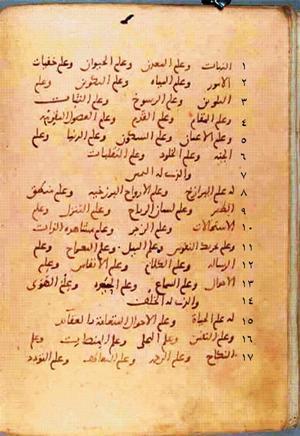 ١ النبات وعلم المعدن وعلم الحيوان وعلم خفيات
٢ الامور وعلم المياه وعلم التكوين وعلم
٣ التلوين وعلم الرسوخ وعلم الثبات
٤ وعلم المقام وعلم القدم وعلم الفصول المقومة
٥ وعلم الاعيان وعلم السكون وعلم الدنيا وعلم
٦ الجنة وعلم الخلود وعلم التقلبات
٧ والذي له اليمين
٨ له علم البرازخ وعلم الارواح البرزخية وعلم منطق
٩ الطير وعلم لسان الرياح وعلم التنزل وعلم
١٠ الاستحالات وعلم الزجر وعلم مشاهدة الذات
١١ وعلم تحريك النفوس وعلم الميل وعلم المعراج وعلم
١٢ الرسالة وعلم الكلام وعلم الانفاس وعلم
١٣ الاحوال وعلم السماع وعلم الحيرة وعلم الهوى
١٤ والذي له الخلف
١٥ له علم الحياة وعلم الاحوال المتعلقة بالعقايد
١٦ وعلم النفس وعلم التجلي وعلم المنصات وعلم
١٧ النكاح وعلم الرحم وعلم التعاطف وعلم التودد